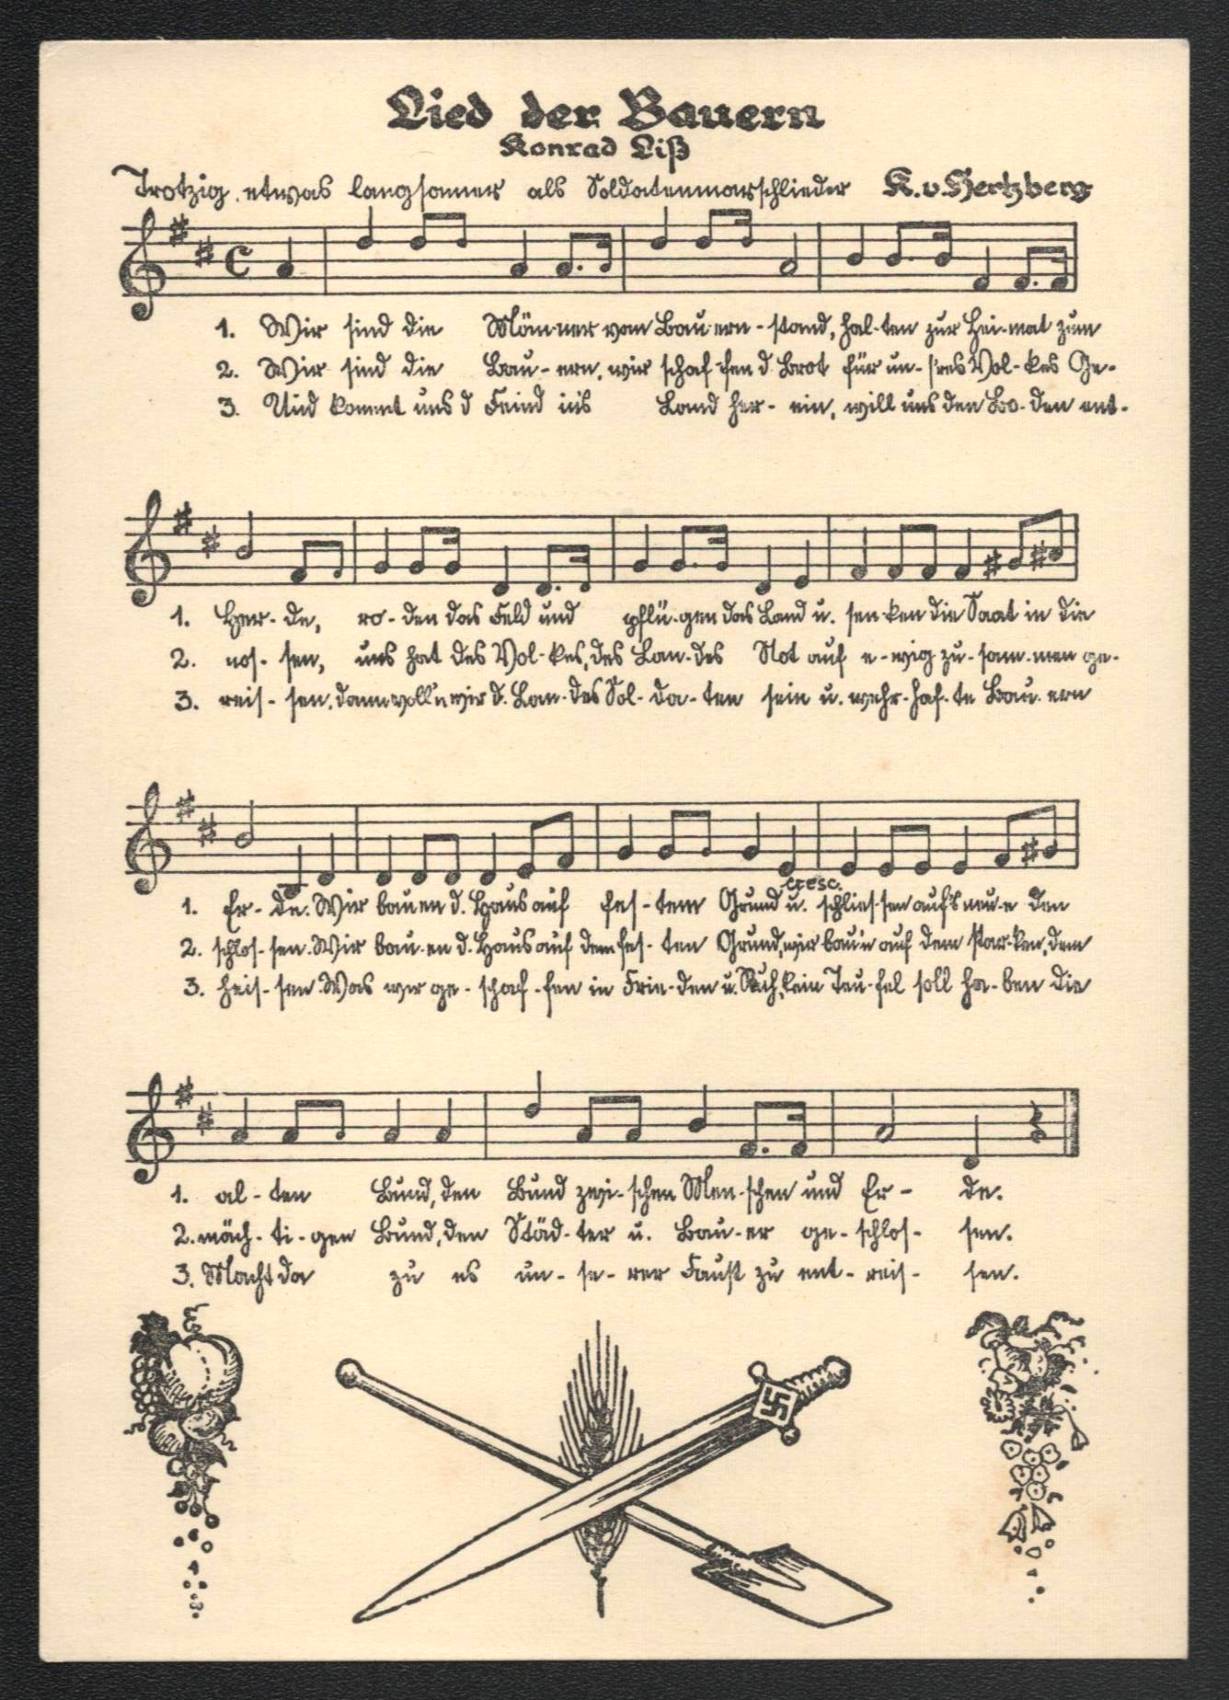 Lied der Bauern
Konrad Liß
Trotzig, etwas langsamer als Soldatenmarschlieder K. v. Hertzberg
1. Wir sind die Män-ner vom Bau-ern-stand, hal-ten zur Hei-mat zum
2. Wir sind die Bau-ern, wir schaf-fen d. Brot für un-s'res Vol-kes Ge-
3. Und kommt uns d Feind in's Land her-ein, will uns den Bo-den ent-
1. Her-de, ro-den das Feld und pflü-gen das Land u. sen-ken die Saat in die
2. nos-sen, uns hat des Vol-kes, des Lan-des Not auf e-wig zu-sam-men ge-
3. reis-sen, dann woll'n wir d. Lan-des Sol-da-ten sein u. wehr-haf-te Bau-ern
cresc.
1. Er-de. Wir bauen d. Haus auf fes-tem Grund u. schlies-sen auf's neu-e den
2. schlos-sen. Wir bau-en d. Haus auf dem fes-ten Grund, wir bau'n auf dem star-ken, dem
3. heis-sen Was wir ge-schaf-fen in Frie-den u. Ruh, kein Teu-fel soll ha-ben die
1. al-ten Bund, den Bund zwi-schen Men-schen und Er-de.
2. mäch-ti-gen Bund, den Städ-ter u. Bau-er ge-schlos-sen.
3. Macht da zu es un-se-rer Faust zu ent-reis-sen.